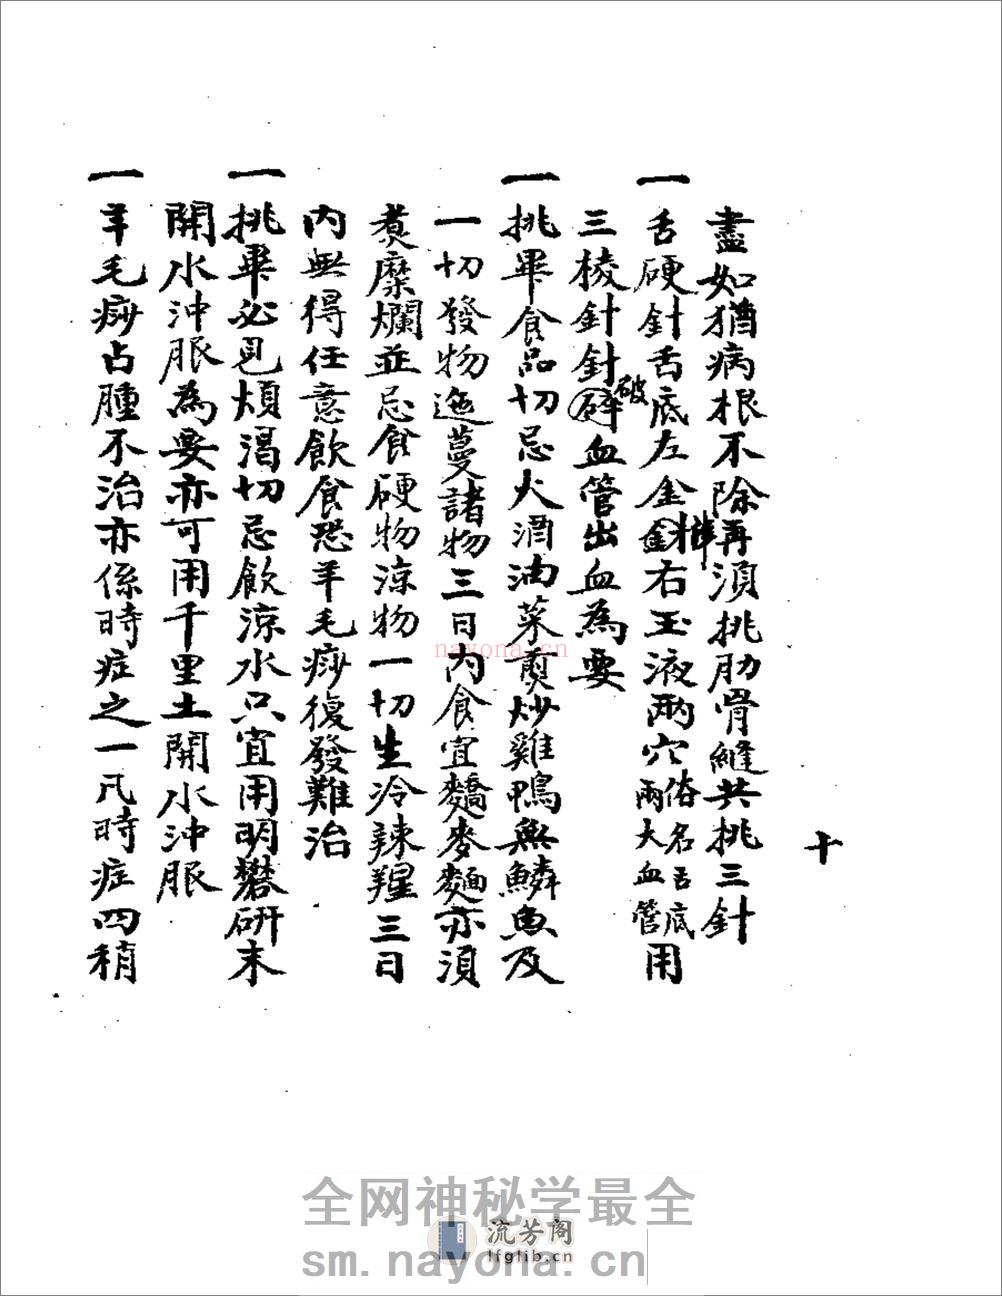 十
盡如猶病根不除再湏挑肋骨縫共挑三針
一舌硬針舌底左金津右玉液兩穴俗名舌底兩大血管用
三棱針針破血管出血為要
一挑畢食品切忌火酒油菜煎炒雞鴨無鱗魚及
一切發物蔓諸物三日內食宜麵亦湏
煮糜爛並忌食硬物涼物一切生冷辣腥三日
內無得任意飲食恐羊毛痧復發難治
一挑畢必見煩渴切忌飲涼水只宜用明礬研末
開水沖服為要亦可用千里土開水沖服
一羊毛痧占腫不治亦係時症之一凡時症四稍
nayona.cn
全网神秘学最全
流芳阁
lfglib.cn
sm.nayona.cn